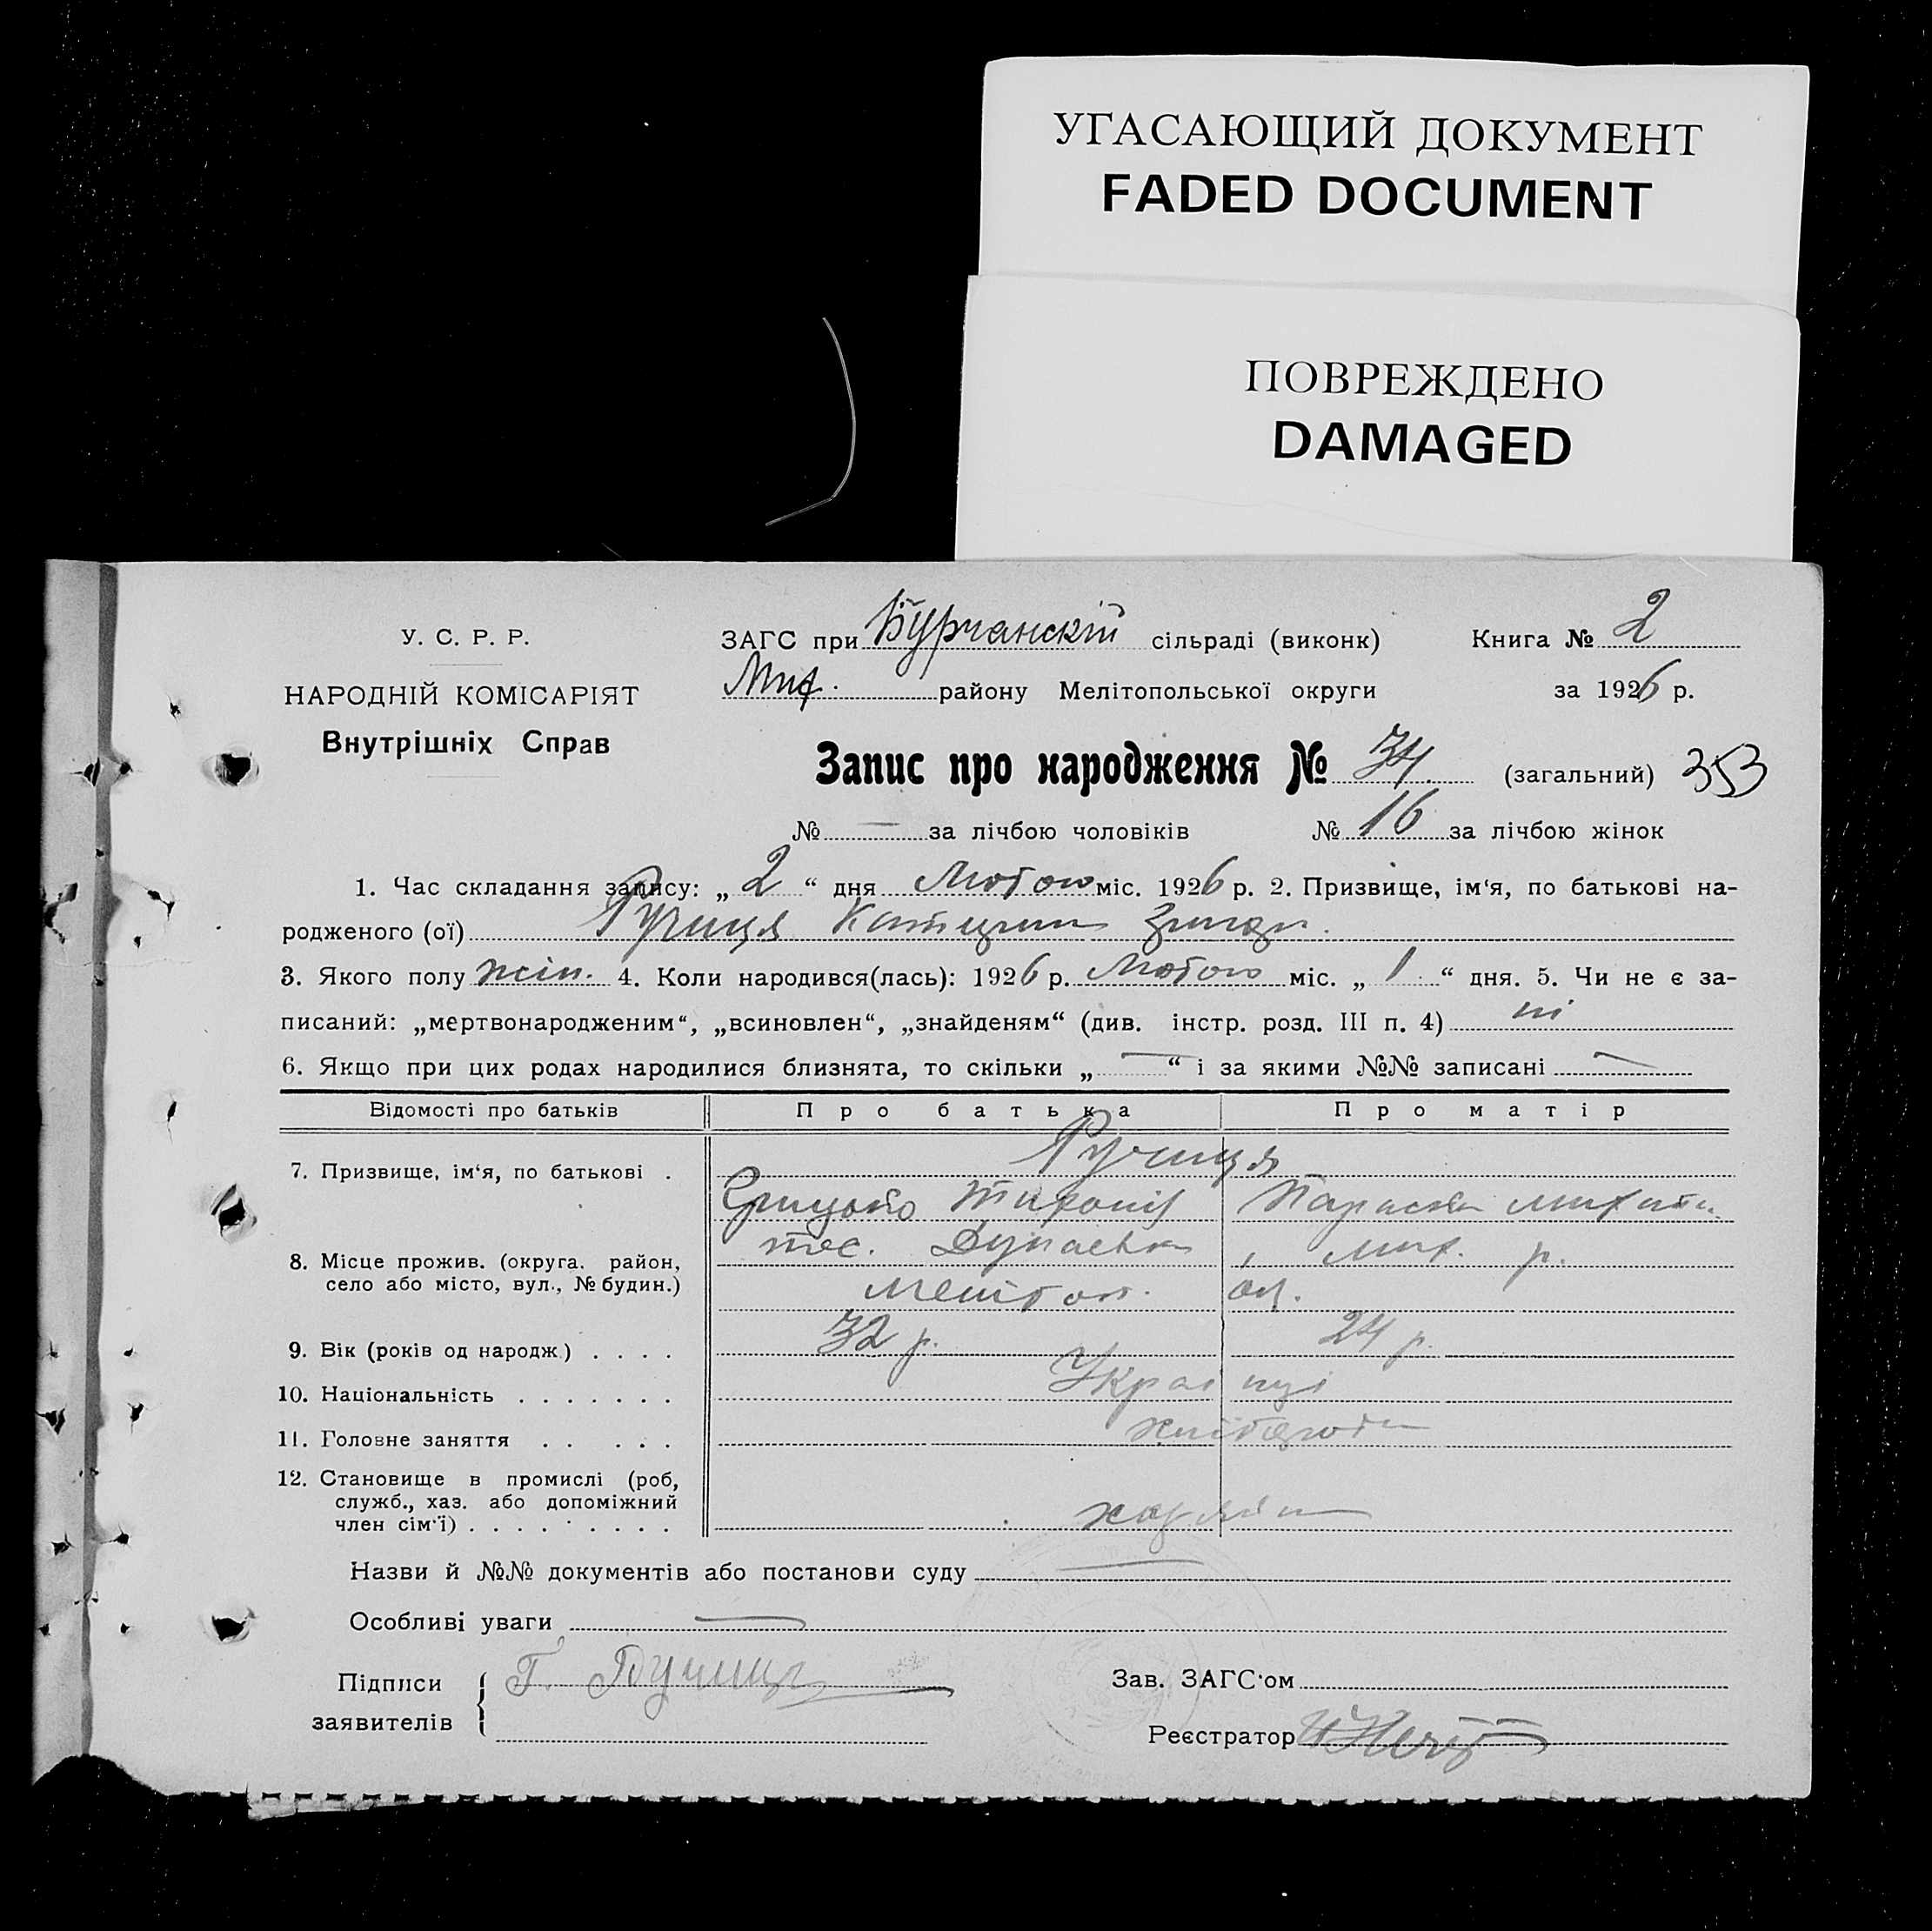 УГАСАЮЩИЙ ДОКУМЕНТ
FADED DOCUMENT
ПОВРЕЖДЕНО
DAMAGED
У. С. Р. Р.
НАРОДНІЙ КОМІСАРІЯТ
Внутрішніх Справ
ЗАГС при Бурчанскій сільраді (виконк) Книга № 2
Мих. району Мелітопольської округи за 1926 р.
Запис про народження № 34 (загальний) 353
№ — за лічбою чоловіків № 16 за лічбою жінок
1. Час складання запису: „ 2 “ дня Лютого міс. 1926 р. 2. Призвище, ім‘я, по батькові на-
родженого (ої)
3. Якого полу жін. 4. Коли народився(лась): 1926 р. Лютого міс. „ 1 “ дня. 5. Чи не є за-
писаний: „мертвонародженим“, „всиновлен“, „знайденям“ (див. інстр. розд. III п. 4) ні
6. Якщо при цих родах народилися близнята, то скільки „ — “ і за якими №№ записані —
Відомості про батьків Про батька Про матір
7. Призвище, ім‘я, по батькові . Ручиця
Грицько Тихонів Параска
8. Місце прожив. (округа. район, Дунаевка, Мих. р.
село або місто, вул., № будин.) Мелітоп. ок.
9. Вік (років од народж.) . . . . 32 р. 24 р.
10. Національність . . . . . . . Українці
11. Головне заняття . . . . . . хлібороби
12. Становище в промислі (роб,
служб., хаз. або допоміжний
член сім‘ї) . . . . . . . . . хазяїн
Назви й №№ документів або постанови суду —
Особливі уваги —
Підписи Г. Ручиця
заявителів
Зав. ЗАГС‘ом
Реєстратор